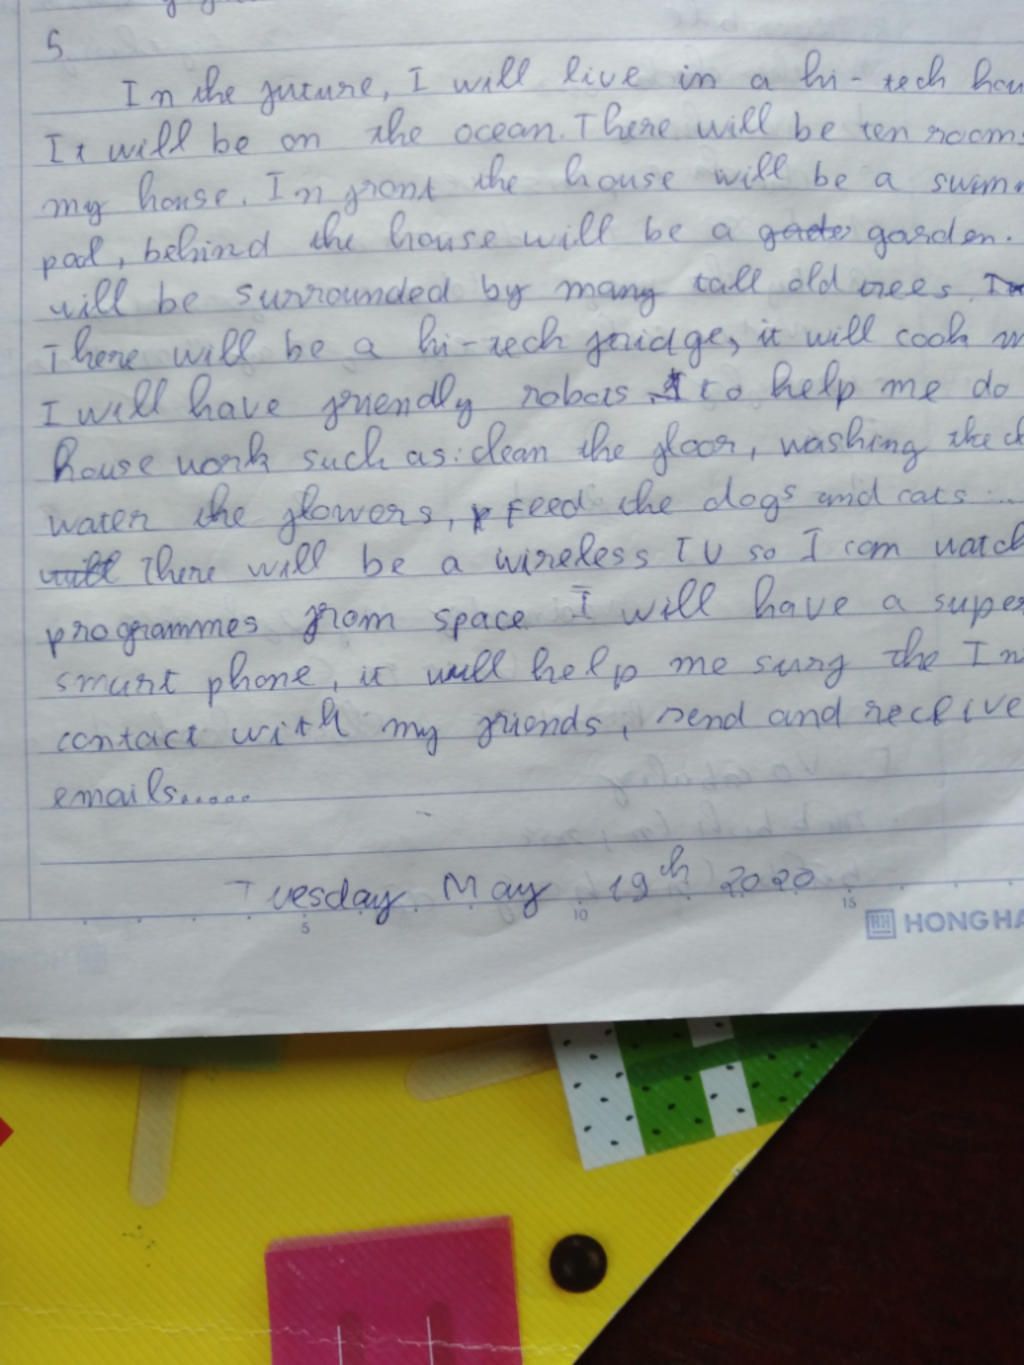 5
In the future, I will live in a hi-tech
It will be on the ocean. There will be ten rooms
my house. In front the house will be a
pool, behind the house will be a garden.
will be surrounded by many tall old trees.
There will be a hi-tech fridge, it will cook
I will have friendly robots to help me do
house work such as: clean the floor, washing the
water the flowers, feed the dogs and cats ...
will There will be a wireless TV so I can watch
programmes from space I will have a super
smart phone, it will help me surg the
contact with my friends, send and receive
emails.....
Tuesday May 19th 2020
5 10 15
HONG HA